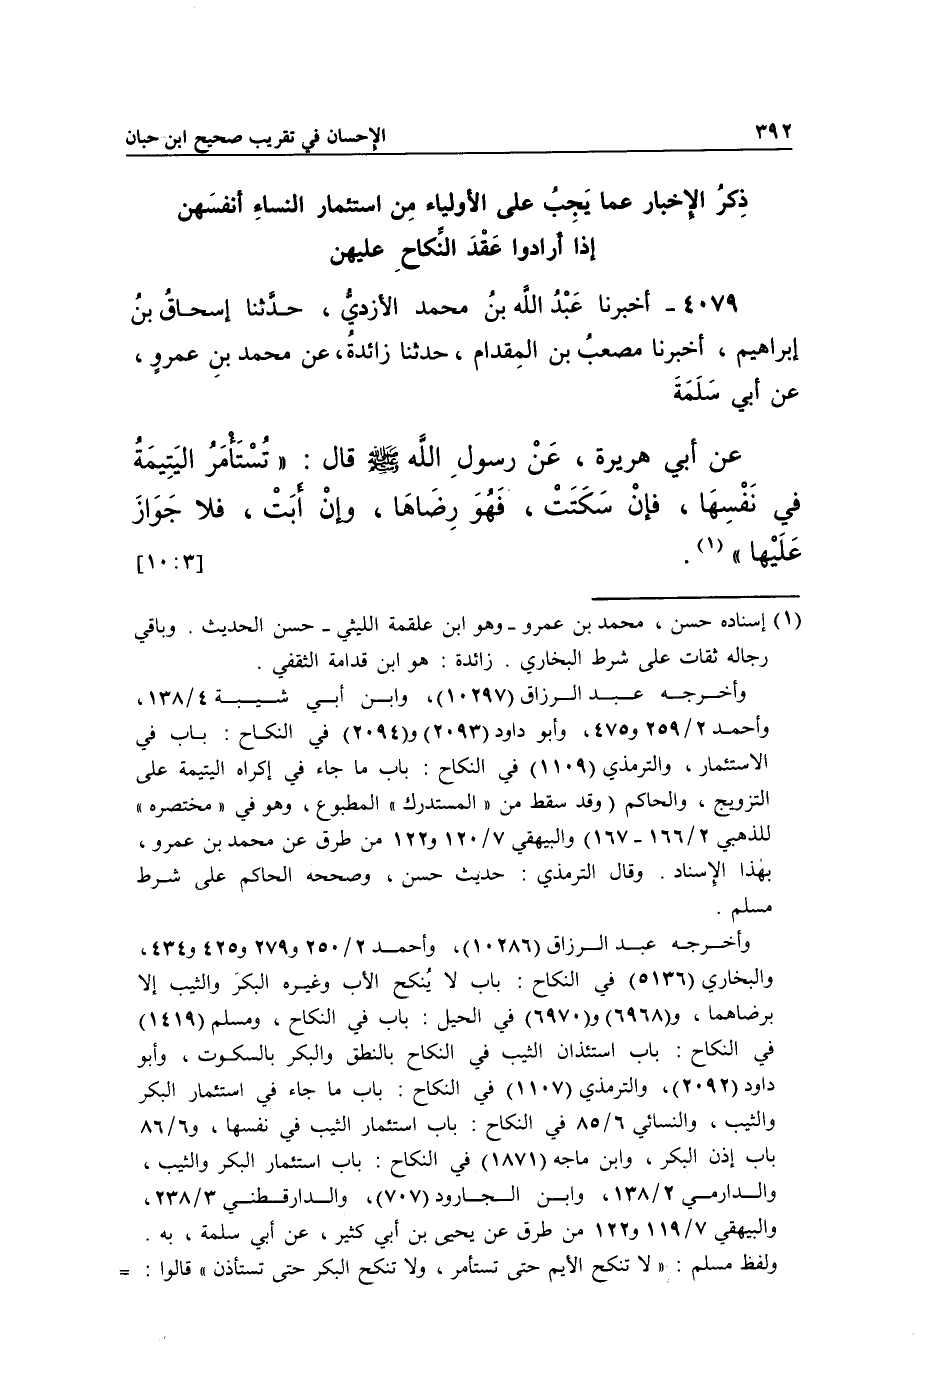 ٣٩٢ الإحسان في تقريب صحيح ابن حبان
ذِكرُ الإِخبار عما يَجِبُ على الأولياء مِن استئمار النساءِ أنفسَهن
إذا أرادوا عَقْدَ النِّكاحِ عليهن
٤٠٧٩ ـ أخبرنا عَبْدُ اللَّه بنُ محمد الأزديُّ ، حدَّثنا إسحاقُ بنُ
إبراهيم ، أخبرنا مصعبُ بن المِقدام ، حدثنا زائدةُ، عن محمد بنِ عمروٍ ،
عن أبي سَلَمَةَ
عن أبي هريرة ، عَنْ رسولِ اللَّه ﷺ قال : « تُسْتَأْمَرُ اليَتِيمَةُ
في نَفْسِهَا ، فإنْ سَكَتَتْ ، فَهُوَ رِضَاهَا ، وإنْ أَبَتْ ، فلا جَوَازَ
عَلَيْها »(١) . [٣ : ١٠]
(١) إسناده حسن ، محمد بن عمرو ـ وهو ابن علقمة الليثي ـ حسن الحديث . وباقي
رجاله ثقات على شرط البخاري . زائدة : هو ابن قدامة الثقفي .
وأخرجه عبد الرزاق (١٠٢٩٧)، وابن أبي شيبة ١٣٨/٤ ،
وأحمد ٢٥٩/٢ و٤٧٥، وأبو داود (٢٠٩٣) و(٢٠٩٤) في النكاح : باب في
الاستئمار ، والترمذي (١١٠٩) في النكاح : باب ما جاء في إكراه اليتيمة على
التزويج ، والحاكم ( وقد سقط من « المستدرك » المطبوع ، وهو في « مختصره »
للذهبي ١٦٦/٢ ـ ١٦٧) والبيهقي ١٢٠/٧ و١٢٢ من طرق عن محمد بن عمرو ،
بهٰذا الإسناد . وقال الترمذي : حديث حسن ، وصححه الحاكم على شرط
مسلم .
وأخرجه عبد الرزاق (١٠٢٨٦)، وأحمد ٢٥٠/٢ و٢٧٩ و٤٢٥ و٤٣٤ ،
والبخاري (٥١٣٦) في النكاح : باب لا يُنكح الأب وغيره البكرَ والثيب إلا
برضاهما ، و(٦٩٦٨) و(٦٩٧٠) في الحيل : باب في النكاح ، ومسلم (١٤١٩)
في النكاح : باب استئذان الثيب في النكاح بالنطق والبكر بالسكوت ، وأبو
داود (٢٠٩٢)، والترمذي (١١٠٧) في النكاح : باب ما جاء في استئمار البكر
والثيب ، والنسائي ٨٥/٦ في النكاح : باب استئمار الثيب في نفسها ، و٨٦/٦
باب إذن البكر ، وابن ماجه (١٨٧١) في النكاح : باب استئمار البكر والثيب ،
والدارمي ١٣٨/٢ ، وابن الجارود (٧٠٧)، والدارقطني ٢٣٨/٣ ،
والبيهقي ١١٩/٧ و١٢٢ من طرق عن يحيى بن أبي كثير ، عن أبي سلمة ، به .
ولفظ مسلم : « لا تنكح الأيم حتى تستأمر ، ولا تنكح البكر حتى تستأذن » قالوا : =